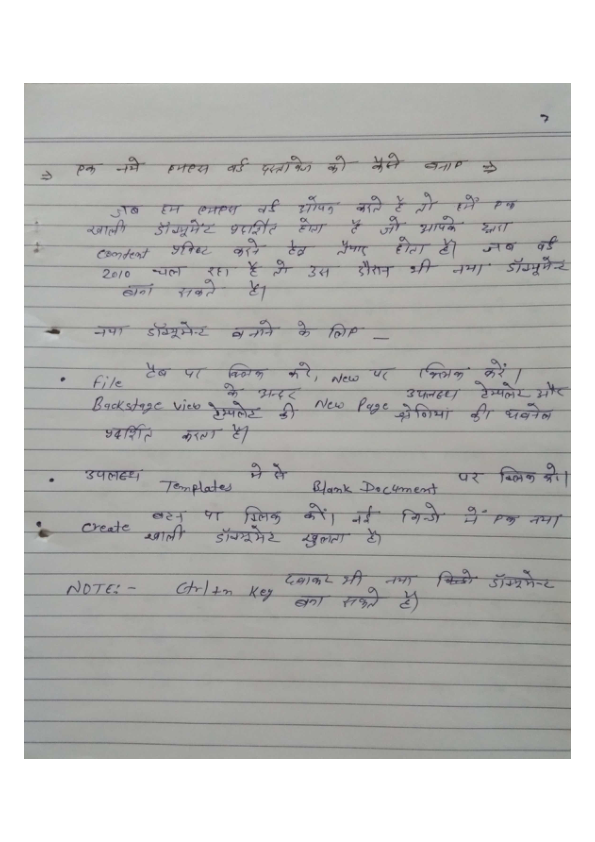 7
⇒ एक नये एमएस वर्ड दस्तावेज को कैसे बनाए ⇒
जब हम एमएस वर्ड ओपन करते है तो हमें एक
खाली डॉक्यूमेंट प्रदर्शित होता है जो आपके द्वारा
Content प्रविष्ट करने हेतु तैयार होता है। जब वर्ड
2010 चल रहा है तो उस दौरान भी नया डॉक्यूमेन्ट
बना सकते है।
नया डॉक्यूमेन्ट बनाने के लिए –
• File टैब पर क्लिक करे, New पर क्लिक करें।
Backstage View के अन्दर New Page उपलब्ध टेम्पलेट और
टेम्पलेट की श्रेणियों की
प्रदर्शित करता है।
• उपलब्ध Templates मे से Blank Document पर क्लिक करे।
• Create बटन पर क्लिक करें। नई विन्डो में एक नया
खाली डॉक्यूमेंट खुलता है।
NOTE:- Ctrl+n Key दबाकर भी नया डॉक्यूमेन्ट
बना सकते है।